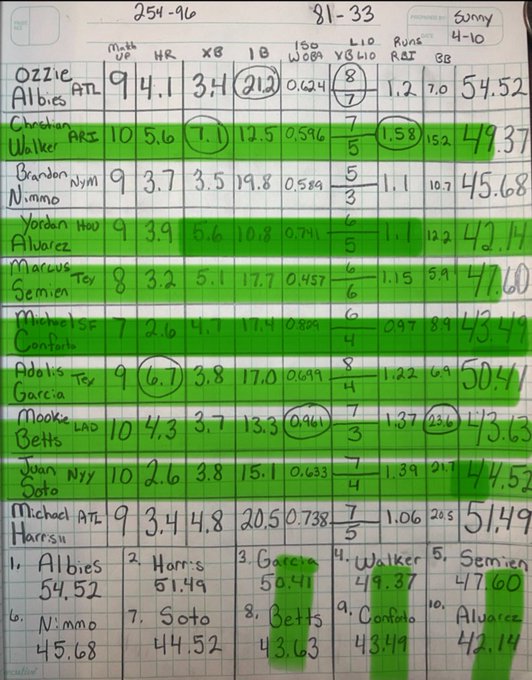 254-96 81-33 PREPARED BY Sunny
4-10
Math up HR XB 1B ISO WOBA L10 XB L10 Runs RBI BB
Ozzie Albies ATL 9 4.1 3.4 21.2 0.624 8/7 1.2 7.0 54.52
Christian Walker ARI 10 5.6 7.1 12.5 0.596 7/5 1.58 15.2 49.37
Brandon Nimmo NYM 9 3.7 3.5 19.8 0.589 5/3 1.1 10.7 45.68
Yordan Alvarez HOU 9 3.9 5.6 10.8 0.741 6/5 1.1 12.2 42.14
Marcus Semien Tex 8 3.2 5.1 17.7 0.457 6/6 1.15 5.9 47.60
Michael Conforto SF 7 2.6 4.7 17.4 6/4 0.97 8.9 43.49
Adolis Garcia Tex 9 6.7 3.8 17.0 0.699 8/4 1.22 6.9 50.41
Mookie Betts LAD 10 4.3 3.7 13.3 0.961 7/3 1.37 23.6 43.63
Juan Soto NYY 10 2.6 3.8 15.1 0.633 7/4 1.39 21.7 44.52
Michael Harris II ATL 9 3.4 4.8 20.5 0.738 7/5 1.06 20.5 51.49
1. Albies 2. Harris 3. Garcia 4. Walker 5. Semien
54.52 51.49 50.41 49.37 47.60
6. Nimmo 7. Soto 8. Betts 9. Conforto 10. Alvarez
45.68 44.52 43.63 43.49 42.14